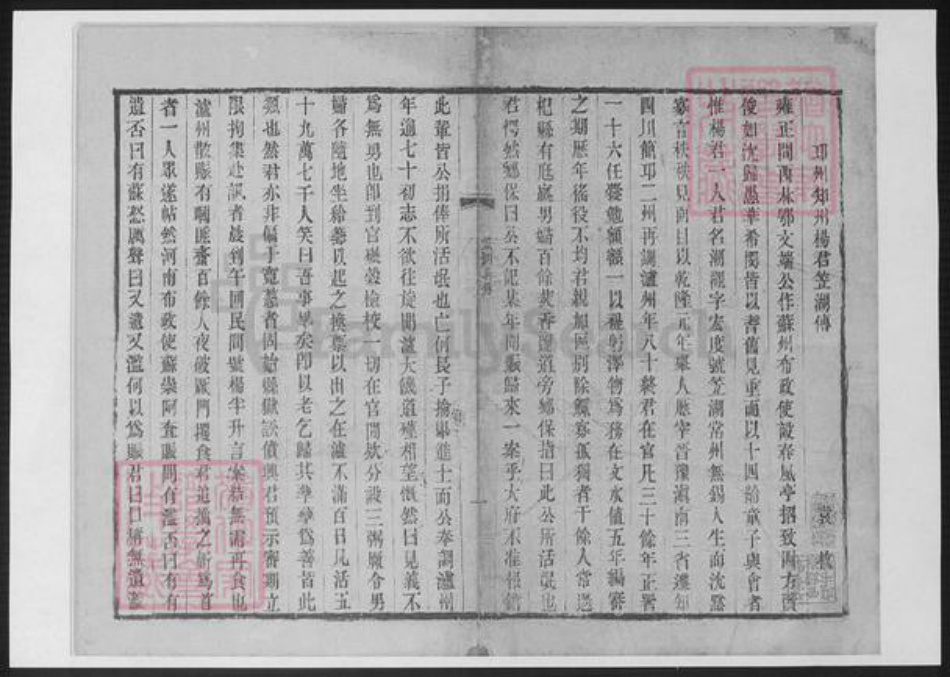 邛州知州楊君笠湖傳
袁枚
雍正間西林鄂文端公作蘇州布政使設春風亭招致四方賢
俊如沈歸愚華希閔皆以耆舊見重而以十四齡童子與會者
惟楊君一人君名潮觀字宏度號笠湖常州無錫人生而沈默
寡言秩秩見眉目以乾隆元年舉人歷宰晉豫滇南三省遷知
四川簡邛二州再調瀘州年八十終君在官凡三十餘年正署
一十六任 一以 躬澤物為務在文水值五年編審
之期歷年徭役不均君親加區別除鰥寡孤獨者千餘人常過
杞縣有尪羸男婦百餘焚香 道旁鄉保指曰此公所活氓也
君愕然鄉保曰公不記某年間賑歸來一案乎大府不准報銷
此輩皆公捐俸所活氓也亡何長子掄舉進士而公奉調瀘州
年過七十初志不欲往旋聞瀘大饑道殣相望慨然曰見義不
為無男也即到官 穀檢校一切在官閒欵分設三粥廠令男
婦各隨地坐給籌以起之換票以出之在瀘不滿百日凡活五
十九萬七千人笑曰吾事畢矣即以老乞歸其孳孳為善皆此
類也然君亦非偏于寬慈者固始縣獄訟 興君預示審期立
限拘集赴訊者晨到午回民間號楊半升言案結無需再食也
瀘州散賑有嘓匪 百餘人夜破厫門攫食君追擒之斬為首
者一人眾遂帖然河南布政使蘇崇阿查賑問有濫否曰有有
遺否曰有蘇怒厲聲曰又遺又濫何以為賑君曰口稱無遺濫